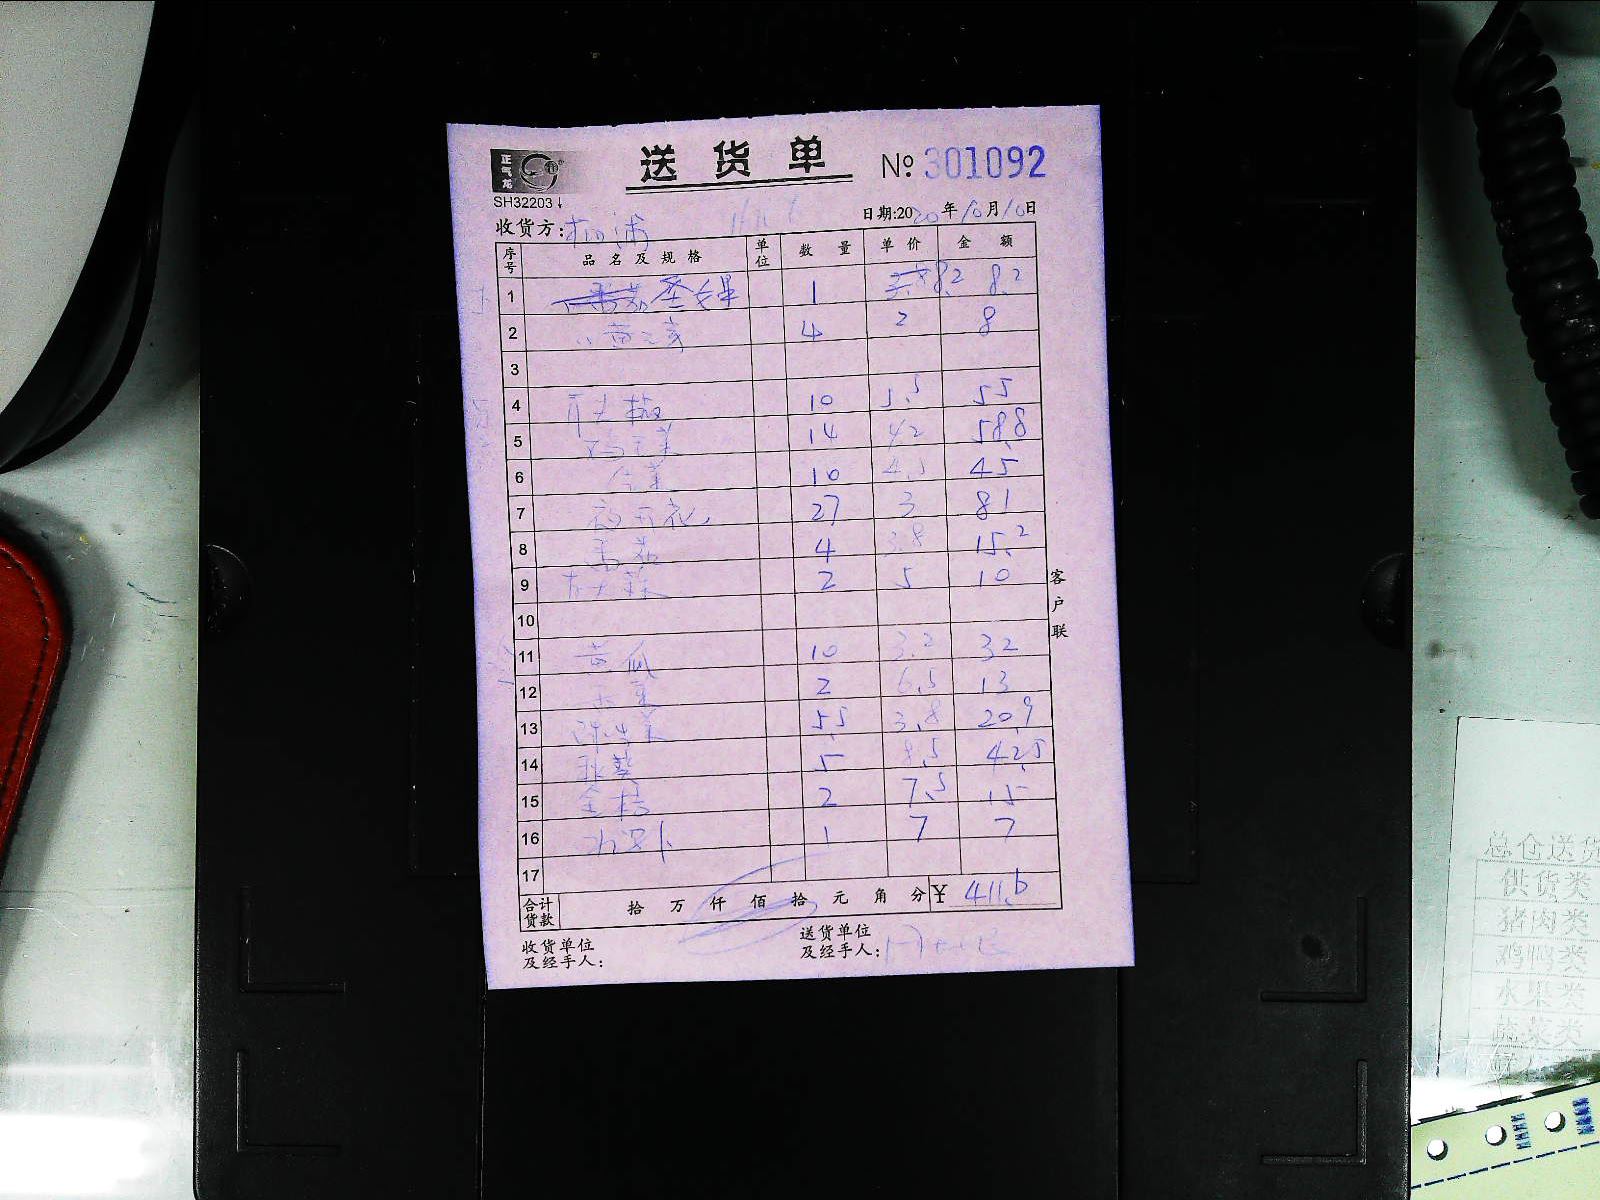 正气龙
送货单 № 301092
SH32203↓
收货方: 杨浦 日期:2020年10月10日
序号 品名及规格 单位 数量 单价 金额
1 圣女果 1 8.2 8.2
2 黄豆芽 4 2 8
3
4 10 5.5 55
5 鸡毛菜 14 4.2 58.8
6 生菜 10 4.5 45
7 西兰花 27 3 81
8 番茄 4 3.8 15.2
9 2 5 10
10
11 黄瓜 10 3.2 32
12 2 6.5 13
13 5.5 3.8 20.9
14 秋葵 5 8.5 42.5
15 金桔 2 7.5 15
16 1 7 7
17
合计货款 拾 万 仟 佰 拾 元 角 分 ¥ 411.6
收货单位
及经手人:
送货单位
及经手人:
客户联
总仓送货
供货类
猪肉类
鸡鸭类
水果类
蔬菜类